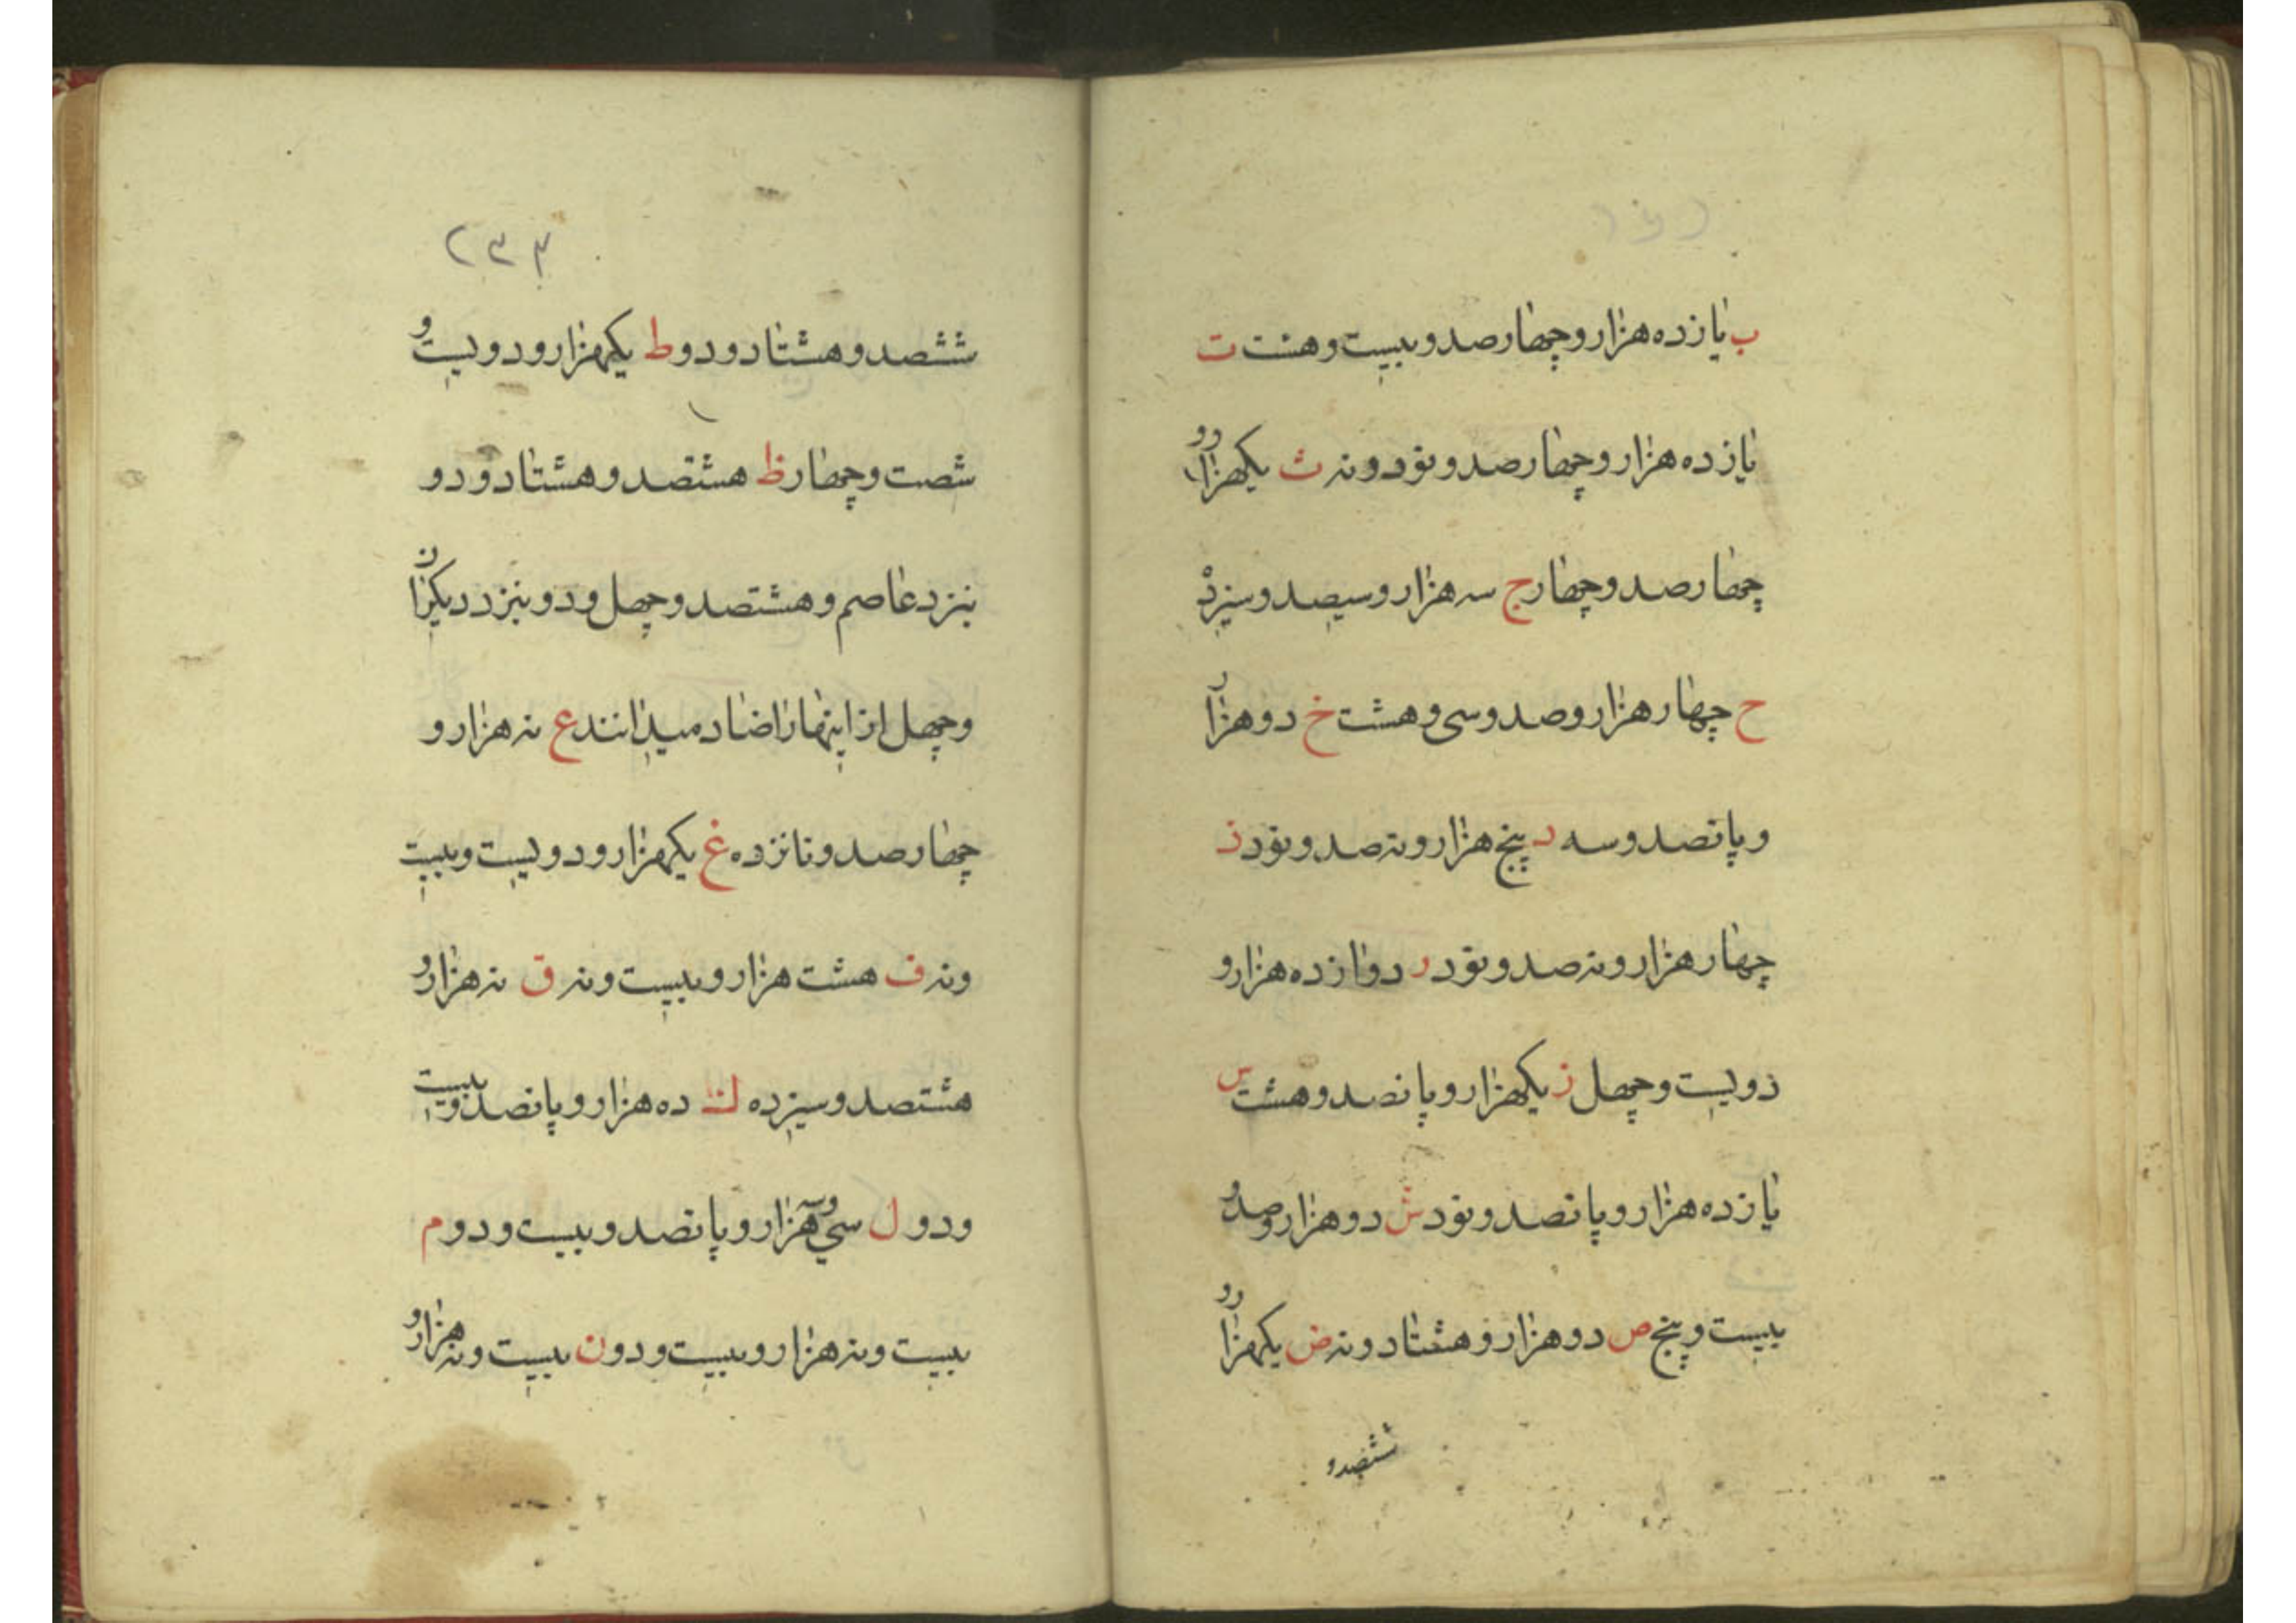 ب یازده هزار و چهارصد و بیست و هشت ت
یازده هزار و چهارصد و نود و نه ث یکهزار و
چهارصد و چهار ج سه هزار و سیصد و سیزده
ح چهار هزار و صد و سی و هشت خ دو هزار
و پانصد و سه د پنج هزار و نه صد و نود ذ
چهار هزار و نه صد و نود ر دوازده هزار و
دویست و چهل ز یکهزار و پانصد و هشت س
یازده هزار و پانصد و نود ش دو هزار و صد و
بیست و پنج ص دو هزار و هشتاد و نه ض یکهزار و
ششصد و
۲۳۳
ششصد و هشتاد و دو ط یکهزار و دویست و
شصت و چهار ظ هشتصد و هشتاد و دو
نزد عاصم و هشتصد و چهل و دو نزد دیگران
و چهل از اینها را ضاد میدانند ع نه هزار و
چهارصد و نانزده غ یکهزار و دویست و بیست
و نه ف هشت هزار و بیست و نه ق نه هزار و
هشتصد و سیزده ك ده هزار و پانصد و بیست
و دو ل سی و سه هزار و پانصد و بیست و دو م
بیست و نه هزار و بیست و دو ن بیست و نه هزار و